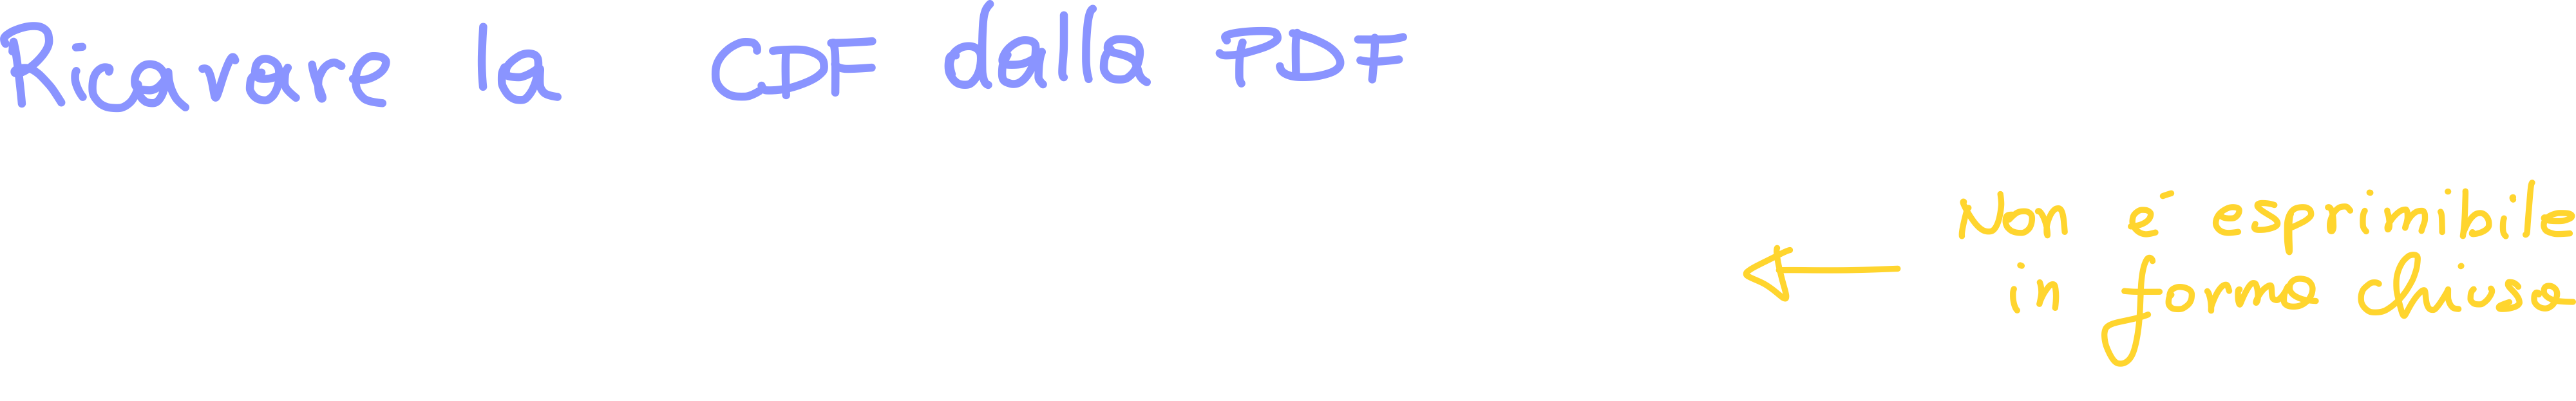 Ricavare la CDF dalla PDF
Non é esprimibile
in forma chiusa